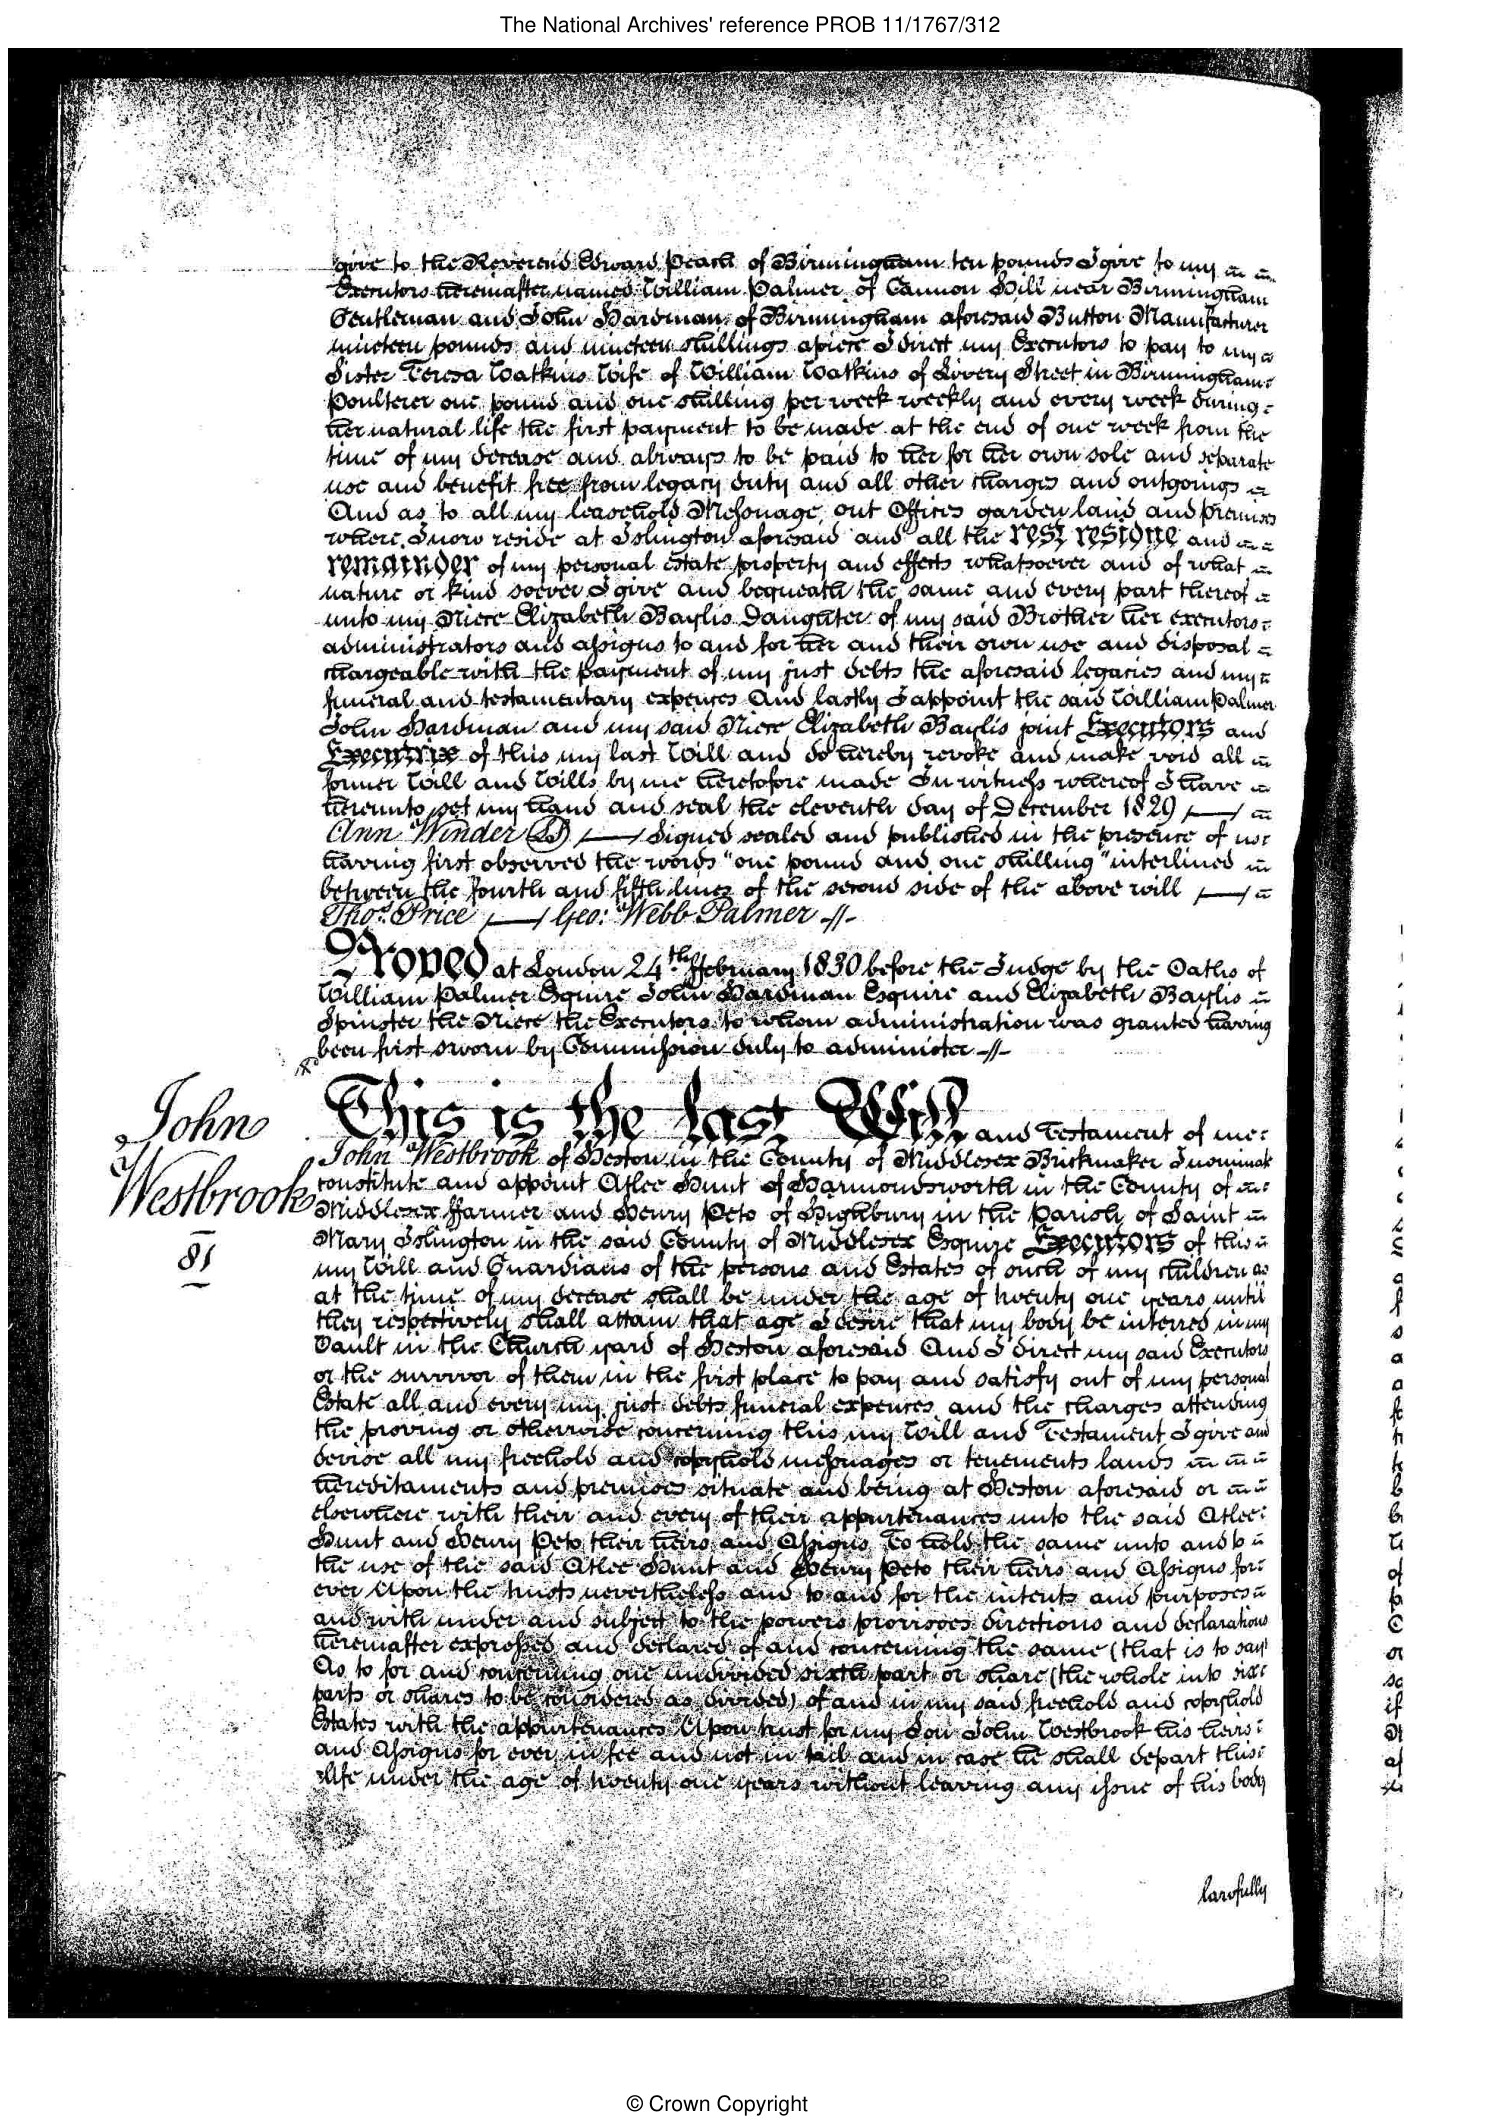 The National Archives' reference PROB 11/1767/312
give to the Reverend Edward Peach of Birmingham ten pounds I give to my
Executors hereinafter named William Palmer of Cannon Hill near Birmingham
Gentleman and John Hardman of Birmingham aforesaid Button Manufacturer
nineteen pounds and nineteen shillings apiece I direct my Executors to pay to my
Sister Teresa Watkins Wife of William Watkins of Livery Street in Birmingham
Poulterer one pound and one shilling per week weekly and every week during
her natural life the first payment to be made at the end of one week from the
time of my decease and always to be paid to her for her own sole and separate
use and benefit free from legacy duty and all other charges and outgoings
And as to all my leasehold Messuage, out Offices garden land and premises
where I now reside at Islington aforesaid and all the rest residue and
remainder of my personal estate property and effects whatsoever and of what
nature or kind soever I give and bequeath the same and every part thereof
unto my Niece Elizabeth Baylis Daughter of my said Brother her executors
administrators and assigns to and for her and their own use and disposal
chargeable with the payment of my just debts the aforesaid legacies and my
funeral and testamentary expences And lastly I appoint the said William Palmer
John Hardman and my said Niece Elizabeth Baylis joint Executors and
Executrix of this my last Will and do hereby revoke and make void all
former Will and Wills by me heretofore made In witness whereof I have
hereunto set my hand and seal the eleventh day of December 1829
Ann Winder (LS) Signed sealed and published in the presence of us
having first observed the words "one pound and one shilling" interlined
between the fourth and fifth lines of the second side of the above will
Thos. Price Geo: Webb Palmer
Proved at London 24th ffebruary 1830 before the Judge by the Oaths of
William Palmer Esquire John Hardman Esquire and Elizabeth Baylis
Spinster the Niece the Executors to whom administration was granted having
been first sworn by Commission duly to administer
John
Westbrook
81
This is the last Will and Testament of me
John Westbrook of Heston in the County of Middlesex Brickmaker I nominate
constitute and appoint Atlee Hunt of Harmondsworth in the County of
Middlesex ffarmer and Henry Peto of Highbury in the Parish of Saint
Mary Islington in the said County of Middlesex Esquire Executors of this
my Will and Guardians of the persons and Estates of such of my children as
at the time of my decease shall be under the age of twenty one years until
they respectively shall attain that age I desire that my body be interred in my
Vault in the Church yard of Heston aforesaid And I direct my said Executors
or the survivor of them in the first place to pay and satisfy out of my personal
Estate all and every my just debts funeral expences and the charges attending
the proving or otherwise concerning this my Will and Testament I give and
devise all my freehold and copyhold messuages or tenements lands
hereditaments and premises situate and being at Heston aforesaid or
elsewhere with their and every of their appurtenances unto the said Atlee
Hunt and Henry Peto their heirs and Assigns To hold the same unto and to
the use of the said Atlee Hunt and Henry Peto their heirs and Assigns for
ever Upon the trusts nevertheless and to and for the intents and purposes
and with under and subject to the powers provisoes directions and declarations
hereinafter expressed and declared of and concerning the same (that is to say)
As to for and concerning one undivided sixth part or share (the whole into six
parts or shares to be considered as divided) of and in my said freehold and copyhold
Estates with the appurtenances Upon trust for my Son John Westbrook his heirs
and Assigns for ever in fee and not in tail and in case he shall depart this
life under the age of twenty one years without leaving any issue of his body
lawfully
Image Reference 282
© Crown Copyright